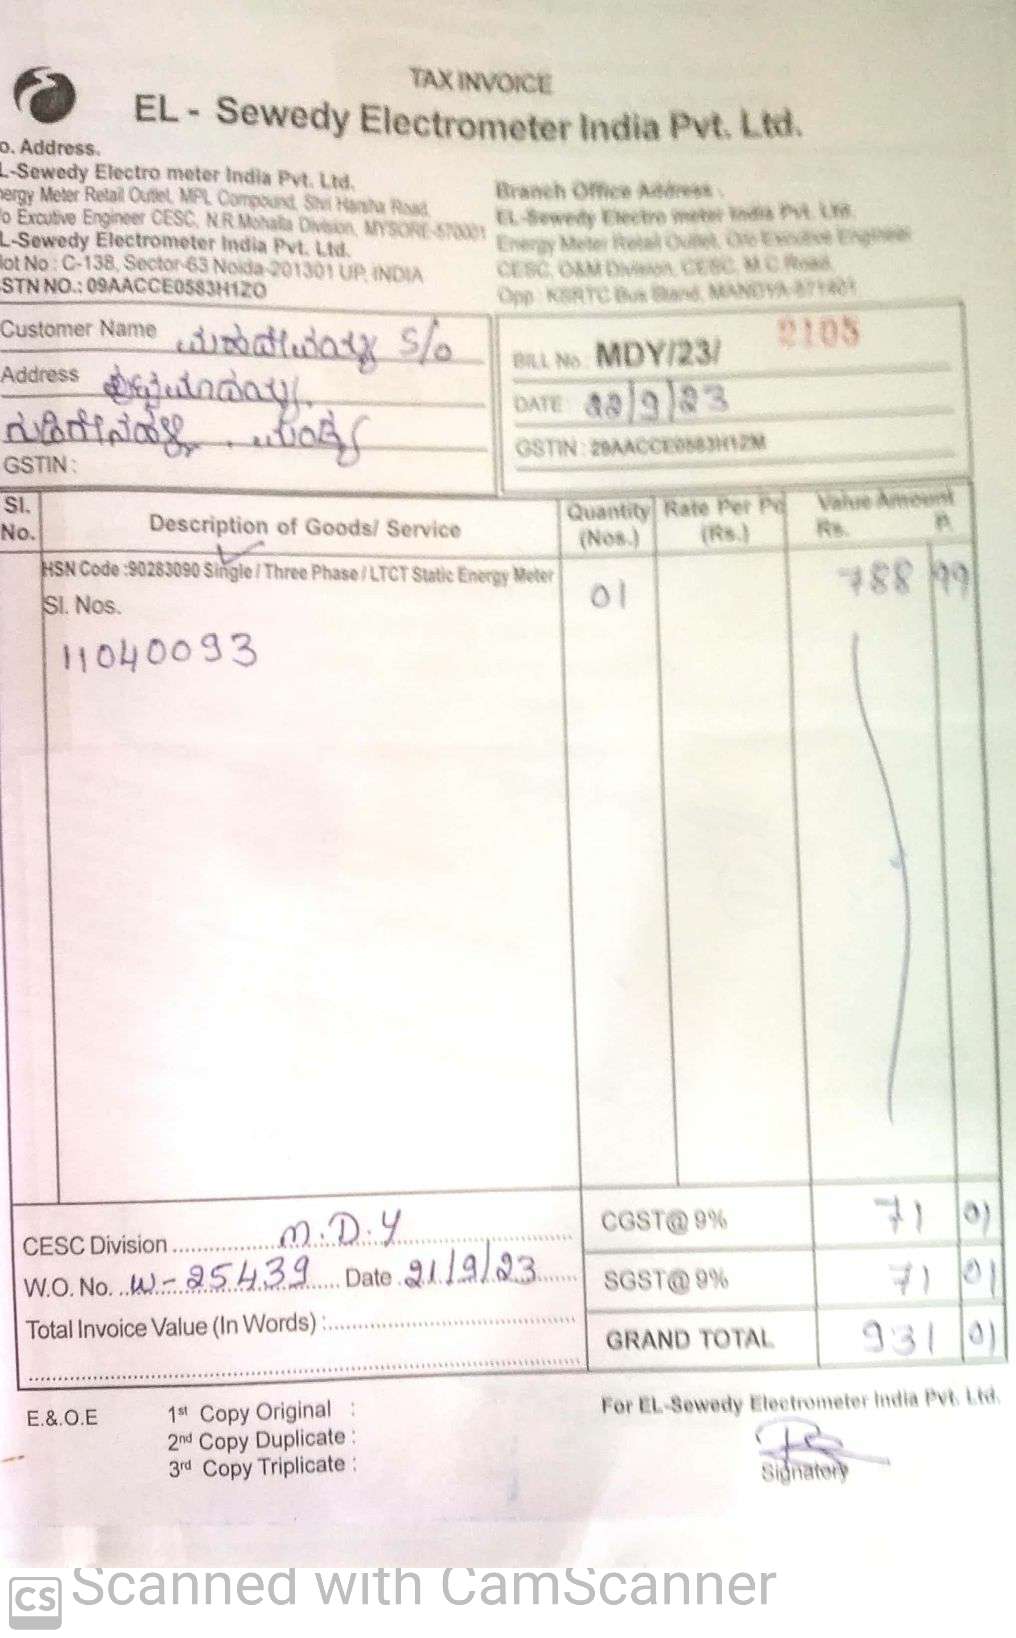 TAX INVOICE
EL - Sewedy Electrometer India Pvt. Ltd.
o. Address.
L-Sewedy Electro meter India Pvt. Ltd.
nergy Meter Retail Outlet, MPL Compound, Shri Harsha Road,
/o Excutive Engineer CESC, N.R Mohalla Division, MYSORE-570001
L-Sewedy Electrometer India Pvt. Ltd.
lot No : C-138, Sector-63 Noida-201301 UP, INDIA
STN NO.: 09AACCE0583H1ZO
Branch Office Address :
EL-Sewedy Electro meter India Pvt. Ltd.
Energy Meter Retail Outlet, C/o Executive Engineer
CESC, O&M Division, CESC, M.C Road,
Opp : KSRTC Bus Stand, MANDYA-571401
Customer Name S/o
Address
GSTIN :
BILL No. MDY/23/ 2105
DATE 22/9/23
GSTIN : 29AACCE0583H1ZM
Sl. No. Description of Goods/ Service Quantity (Nos.) Rate Per Pc (Rs.) Value Amount Rs. P.
HSN Code :90283090 Single / Three Phase / LTCT Static Energy Meter 01 788 99
Sl. Nos.
11040093
CESC Division M.D.Y
W.O. No. W-25439 Date 21/9/23
Total Invoice Value (In Words) :
CGST@ 9% 71 01
SGST@ 9% 71 01
GRAND TOTAL 931 01
E.&.O.E
1st Copy Original :
2nd Copy Duplicate :
3rd Copy Triplicate :
For EL-Sewedy Electrometer India Pvt. Ltd.
Signatory
CS Scanned with CamScanner